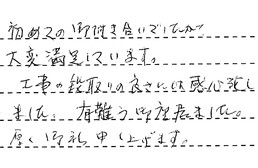 初めてのお付き合いでしたが
大変満足しています。
工事の段取りの良さには感心致し
ました。有難う御座居ました。
厚く御礼申し上げます。